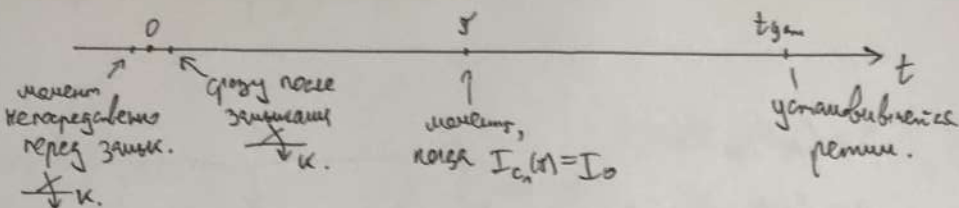 0 τ tуст
t
момент
непосредственно
перед замык.
К.
сразу после
замыкания
К.
момент,
когда I_C₁(τ) = I₀
установившийся
режим.